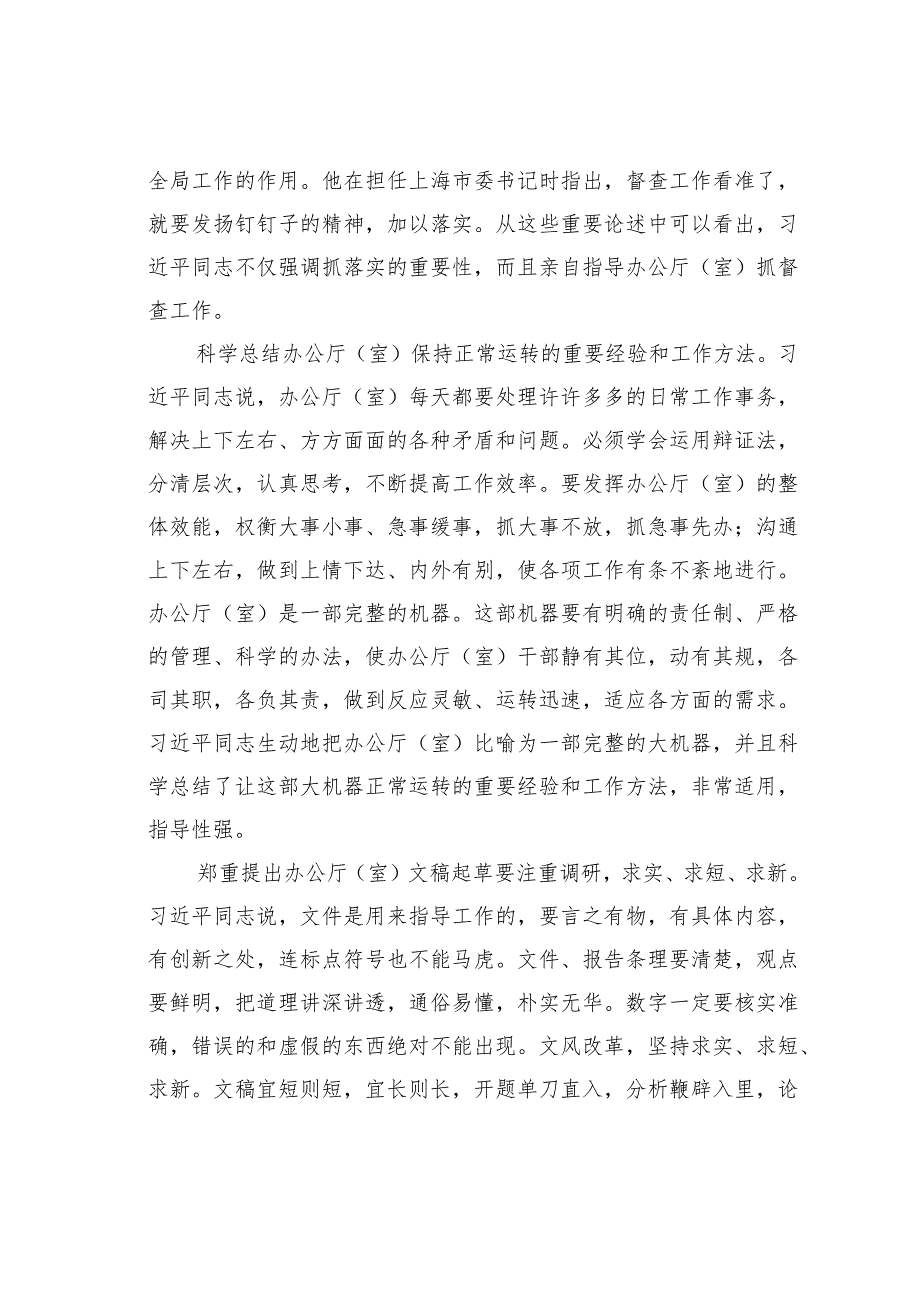 全局工作的作用。他在担任上海市委书记时指出，督查工作看准了，
就要发扬钉钉子的精神，加以落实。从这些重要论述中可以看出，习
近平同志不仅强调抓落实的重要性，而且亲自指导办公厅（室）抓督
查工作。
科学总结办公厅（室）保持正常运转的重要经验和工作方法。习
近平同志说，办公厅（室）每天都要处理许许多多的日常工作事务，
解决上下左右、方方面面的各种矛盾和问题。必须学会运用辩证法，
分清层次，认真思考，不断提高工作效率。要发挥办公厅（室）的整
体效能，权衡大事小事、急事缓事，抓大事不放，抓急事先办；沟通
上下左右，做到上情下达、内外有别，使各项工作有条不紊地进行。
办公厅（室）是一部完整的机器。这部机器要有明确的责任制、严格
的管理、科学的办法，使办公厅（室）干部静有其位，动有其规，各
司其职，各负其责，做到反应灵敏、运转迅速，适应各方面的需求。
习近平同志生动地把办公厅（室）比喻为一部完整的大机器，并且科
学总结了让这部大机器正常运转的重要经验和工作方法，非常适用，
指导性强。
郑重提出办公厅（室）文稿起草要注重调研，求实、求短、求新。
习近平同志说，文件是用来指导工作的，要言之有物，有具体内容，
有创新之处，连标点符号也不能马虎。文件、报告条理要清楚，观点
要鲜明，把道理讲深讲透，通俗易懂，朴实无华。数字一定要核实准
确，错误的和虚假的东西绝对不能出现。文风改革，坚持求实、求短、
求新。文稿宜短则短，宜长则长，开题单刀直入，分析鞭辟入里，论